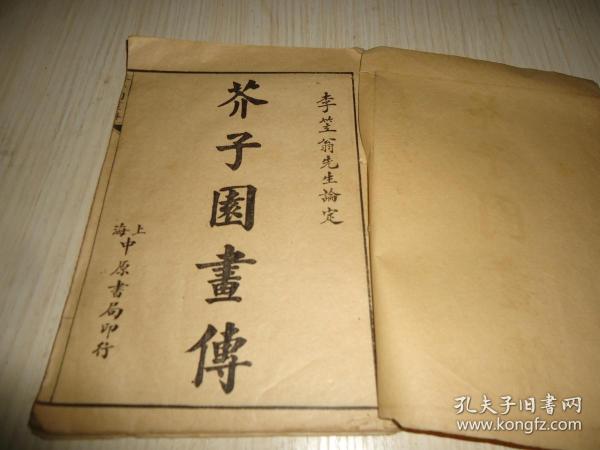 李笠翁先生論定
芥子園畫傳
上海中原書局印行
孔夫子旧书网
www.kongfz.com